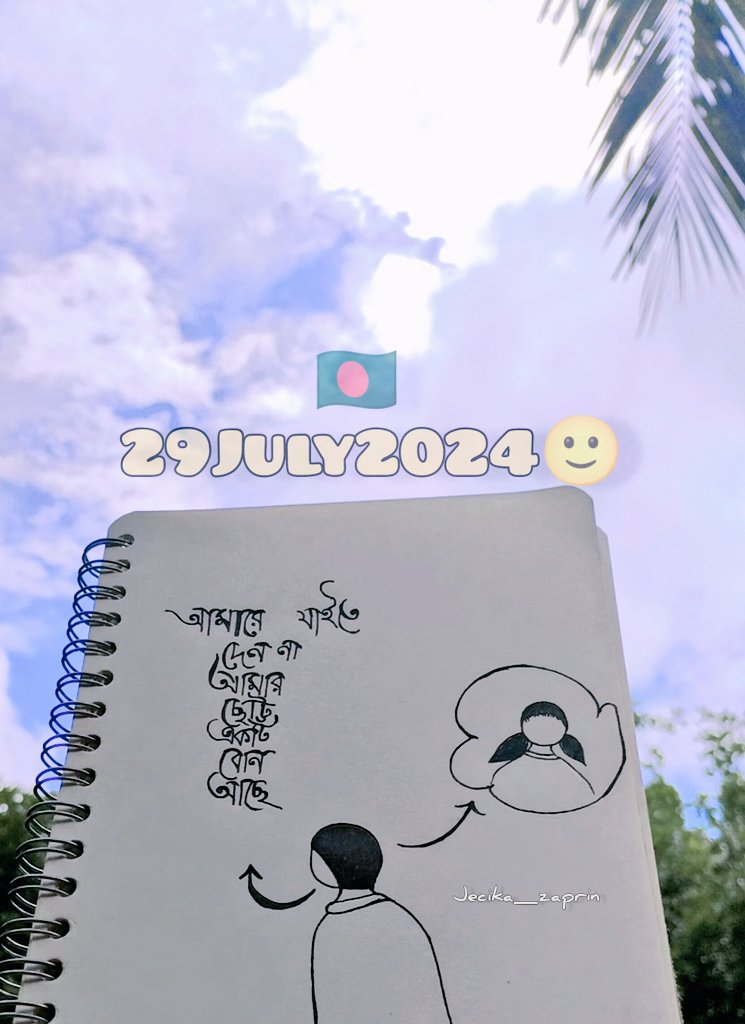 🇧🇩
29July2024🙂
আমারে যাইতে
দেন না
আমার
ছোট্ট
একটি
বোন
আছে
Jecika__zaprin